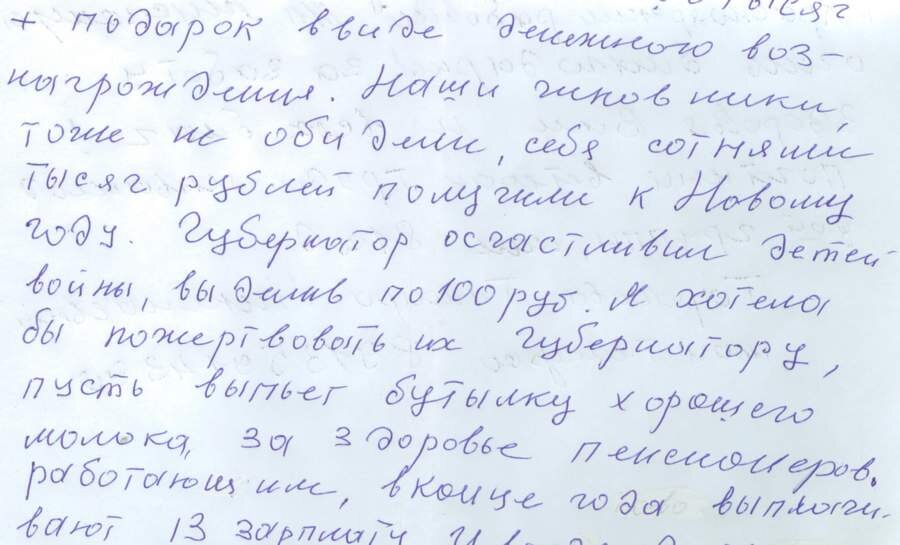 + подарок ввиде денежного воз-
награждения. Наши чиновники,
тоже не обидели, себя сотнями
тысяч рублей получили к Новому
году. Губернатор осчастливил детей
войны, выделив по 100 руб. Я хотела
бы пожертвовать их Губернатору,
пусть выпьет бутылку хорошего
молока, за здоровье пенсионеров.
работающим, вконце года выплачи-
вают 13 зарплату